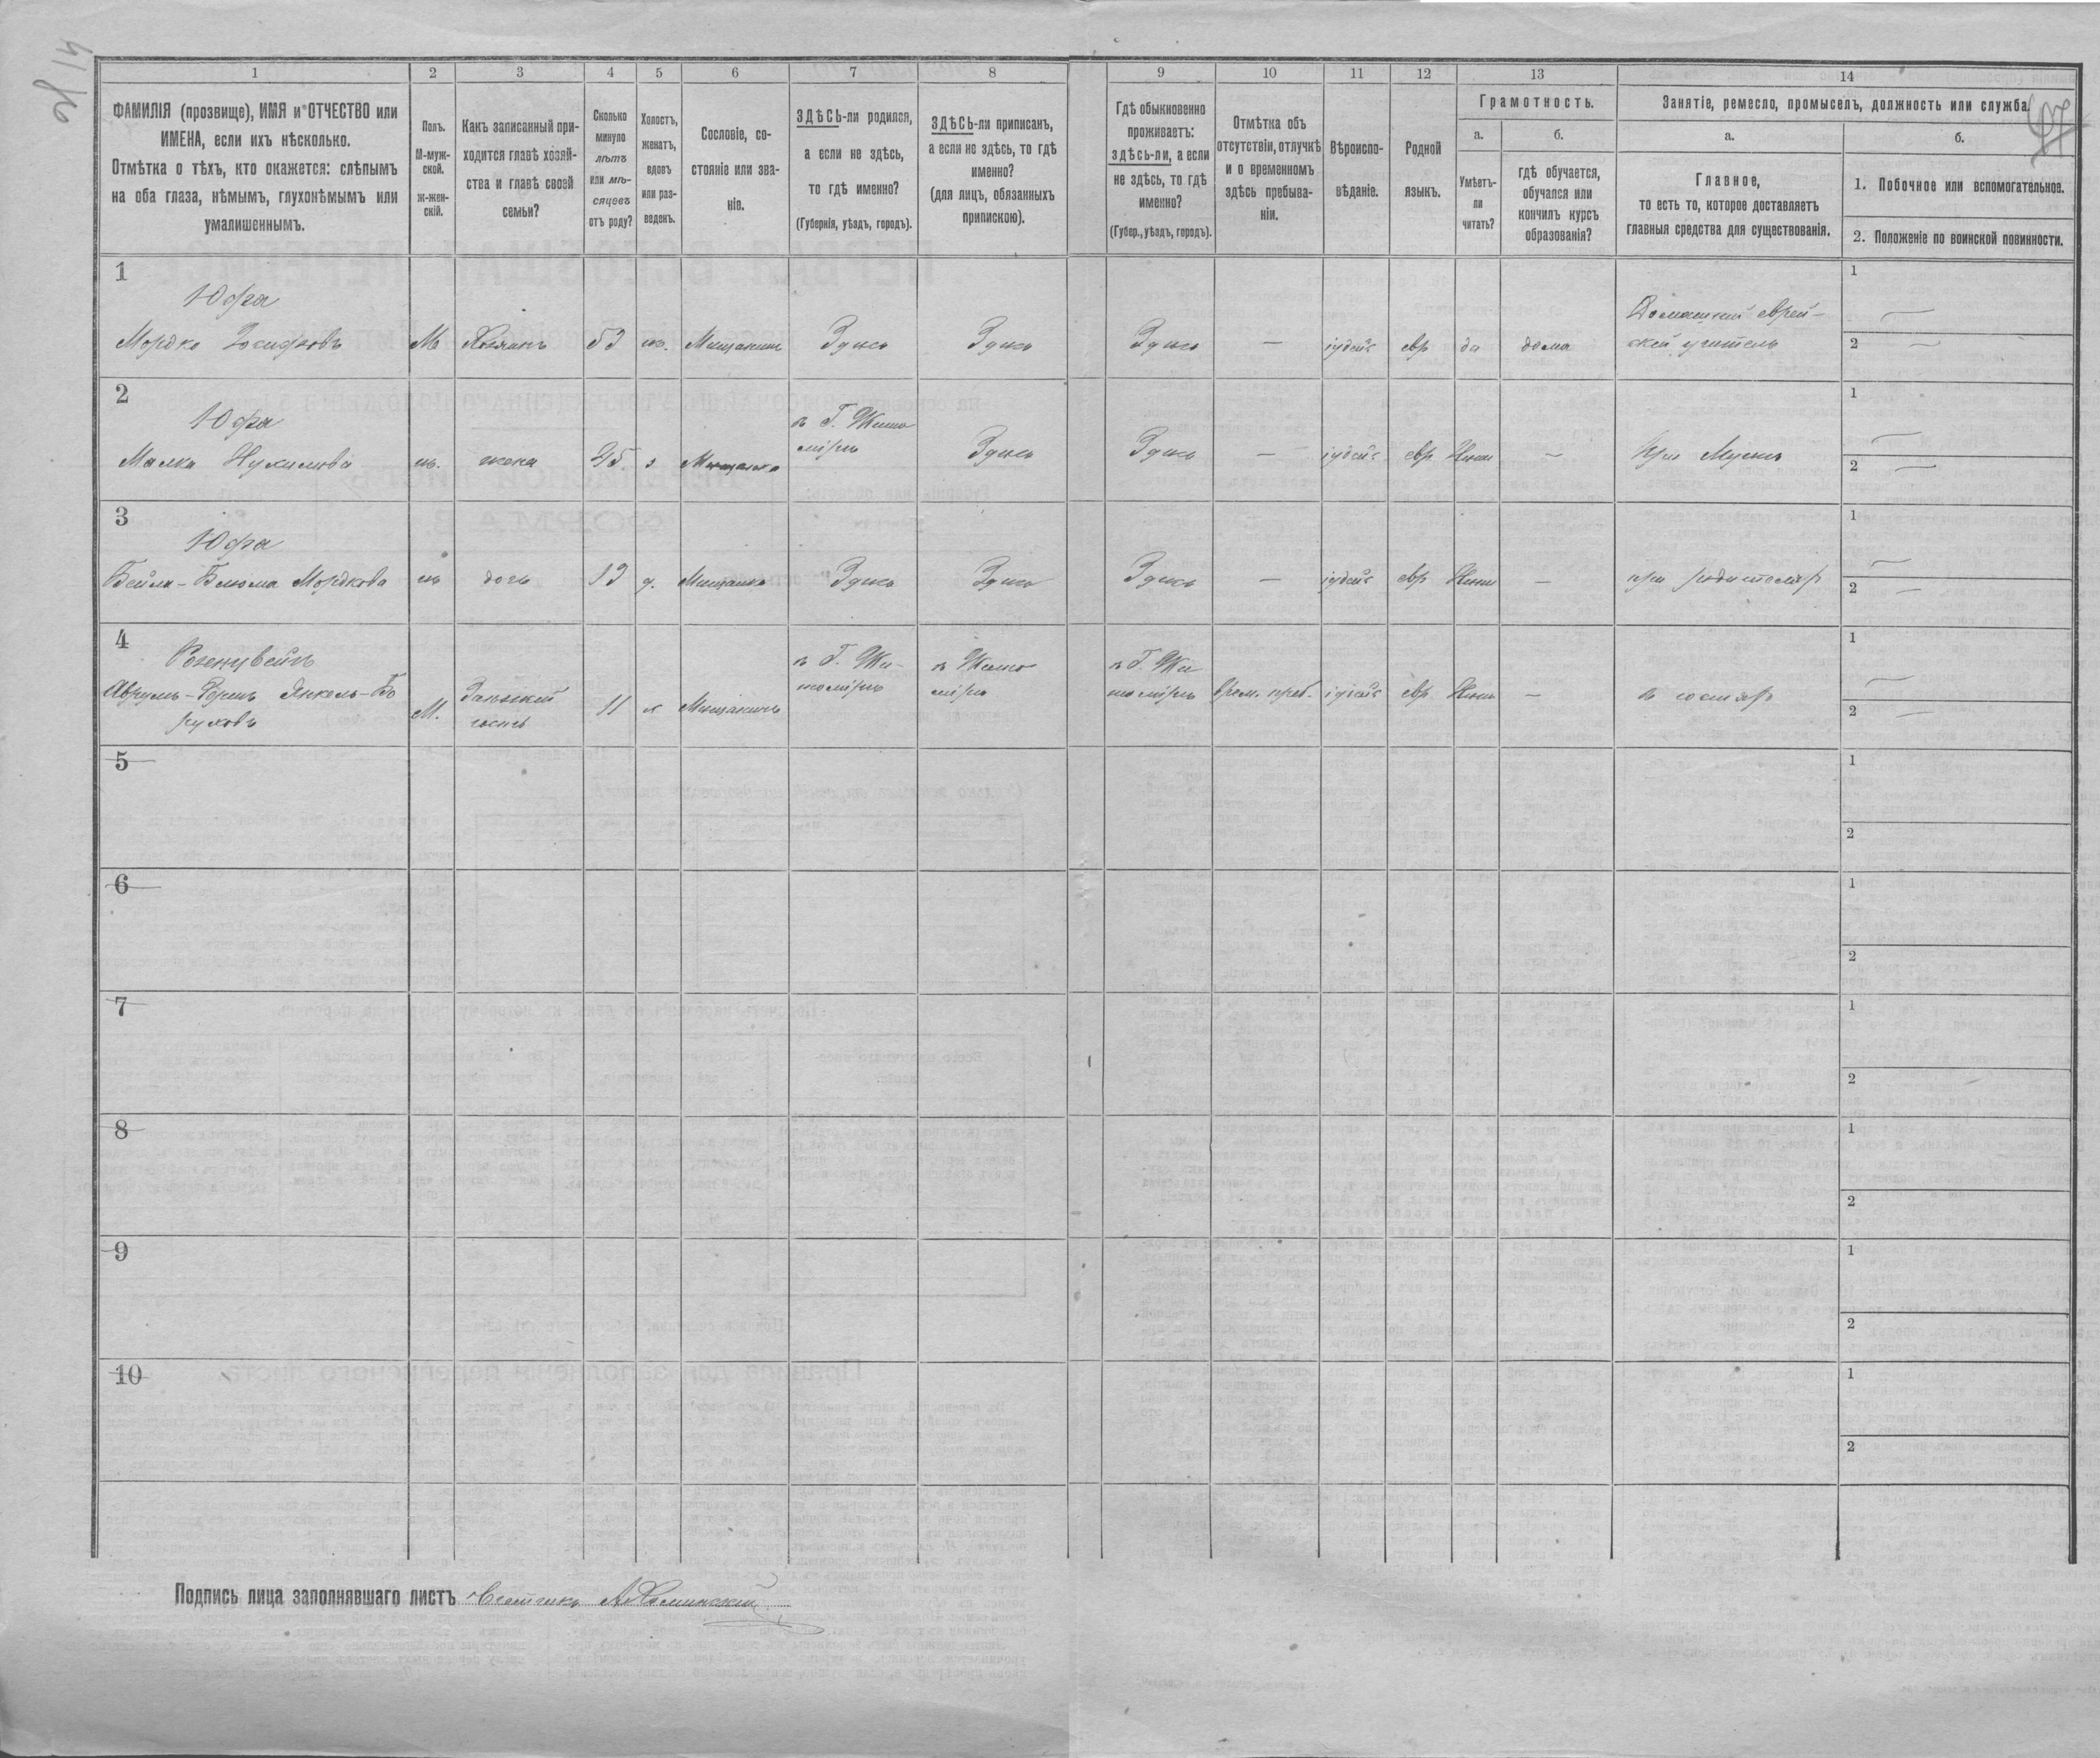 41 об
1 2 3 4 5 6 7 8 9 10 11 12 13 14
ФАМИЛІЯ (прозвище), ИМЯ и ОТЧЕСТВО или
ИМЕНА, если ихъ нѣсколько.
Отмѣтка о тѣхъ, кто окажется: слѣпымъ
на оба глаза, нѣмымъ, глухонѣмымъ или
умалишеннымъ.
Полъ.
М-муж-
ской.
ж-жен-
скій.
Какъ записанный при-
ходится главѣ хозяй-
ства и главѣ своей
семьи?
Сколько
минуло
лѣтъ
или мѣ-
сяцевъ
отъ роду?
Холостъ,
женатъ,
вдовъ
или раз-
веденъ.
Сословіе, со-
стояніе или зва-
ніе.
ЗДѢСЬ-ли родился,
а если не здѣсь,
то гдѣ именно?
(Губернія, уѣздъ, городъ).
ЗДѢСЬ-ли приписанъ,
а если не здѣсь, то гдѣ
именно?
(для лицъ, обязанныхъ
припискою).
Гдѣ обыкновенно
проживаетъ:
здѣсь-ли, а если
не здѣсь, то гдѣ
именно?
(Губер., уѣздъ, городъ).
Отмѣтка объ
отсутствіи, отлучкѣ
и о временномъ
здѣсь пребыва-
ніи.
Вѣроиспо-
вѣданіе.
Родной
языкъ.
Грамотность.
а. б.
Умѣетъ-
ли
читать?
гдѣ обучается,
обучался или
кончилъ курсъ
образованія?
Занятіе, ремесло, промыселъ, должность или служба
а. б.
Главное,
то есть то, которое доставляетъ
главныя средства для существованія.
1. Побочное или вспомогательное.
2. Положеніе по воинской повинности.
1
Юфа
Мордко Іосифовъ М Хозяинъ 53 ж. Мѣщанинъ Здѣсь Здѣсь Здѣсь — іудейс евр да дома
Домашній еврей-
скій учитель
1 —
2 —
2
Юфа
Малка Нухимова ж. жена 45. з Мѣщанка
въ Г. Жито
мірѣ
Здѣсь Здѣсь — іудейс евр Нѣтъ — При Мужѣ
1 —
2 —
3
Юфа
Бейла-Блюма Мордкова ж дочь 13 д. Мѣщанка Здѣсь Здѣсь Здѣсь — іудейс евр Нѣтъ — при родителяхъ
1 —
2 —
4
Розенцвейгъ
Янкель-Бо
руховъ М.
гость
11 х Мѣщанинъ
въ Г. Жи-
томірѣ
въ Жито
мірѣ
въ Г. Жи
томірѣ
врем. преб. іудейс евр Нѣтъ — въ гостяхъ
1 —
2 —
5
1
2
6
1
2
7
1
2
8
1
2
9
1
2
10
1
2
Подпись лица заполнявшаго листъ Счетчикъ